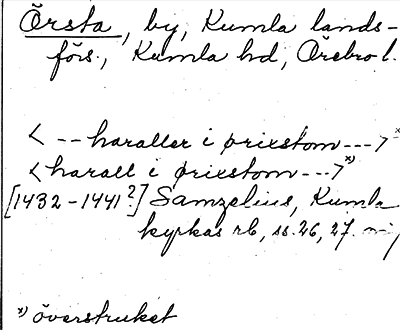 Örsta, by, Kumla lands-
förs., Kumla hd, Örebro l.
< -- haraller i ørixstom --- > x)
< harall i ørixstom --- > x)
[1432-1441?] Samzelius, Kumla
kyrkas rb, ss. 26, 27.
x) överstruket